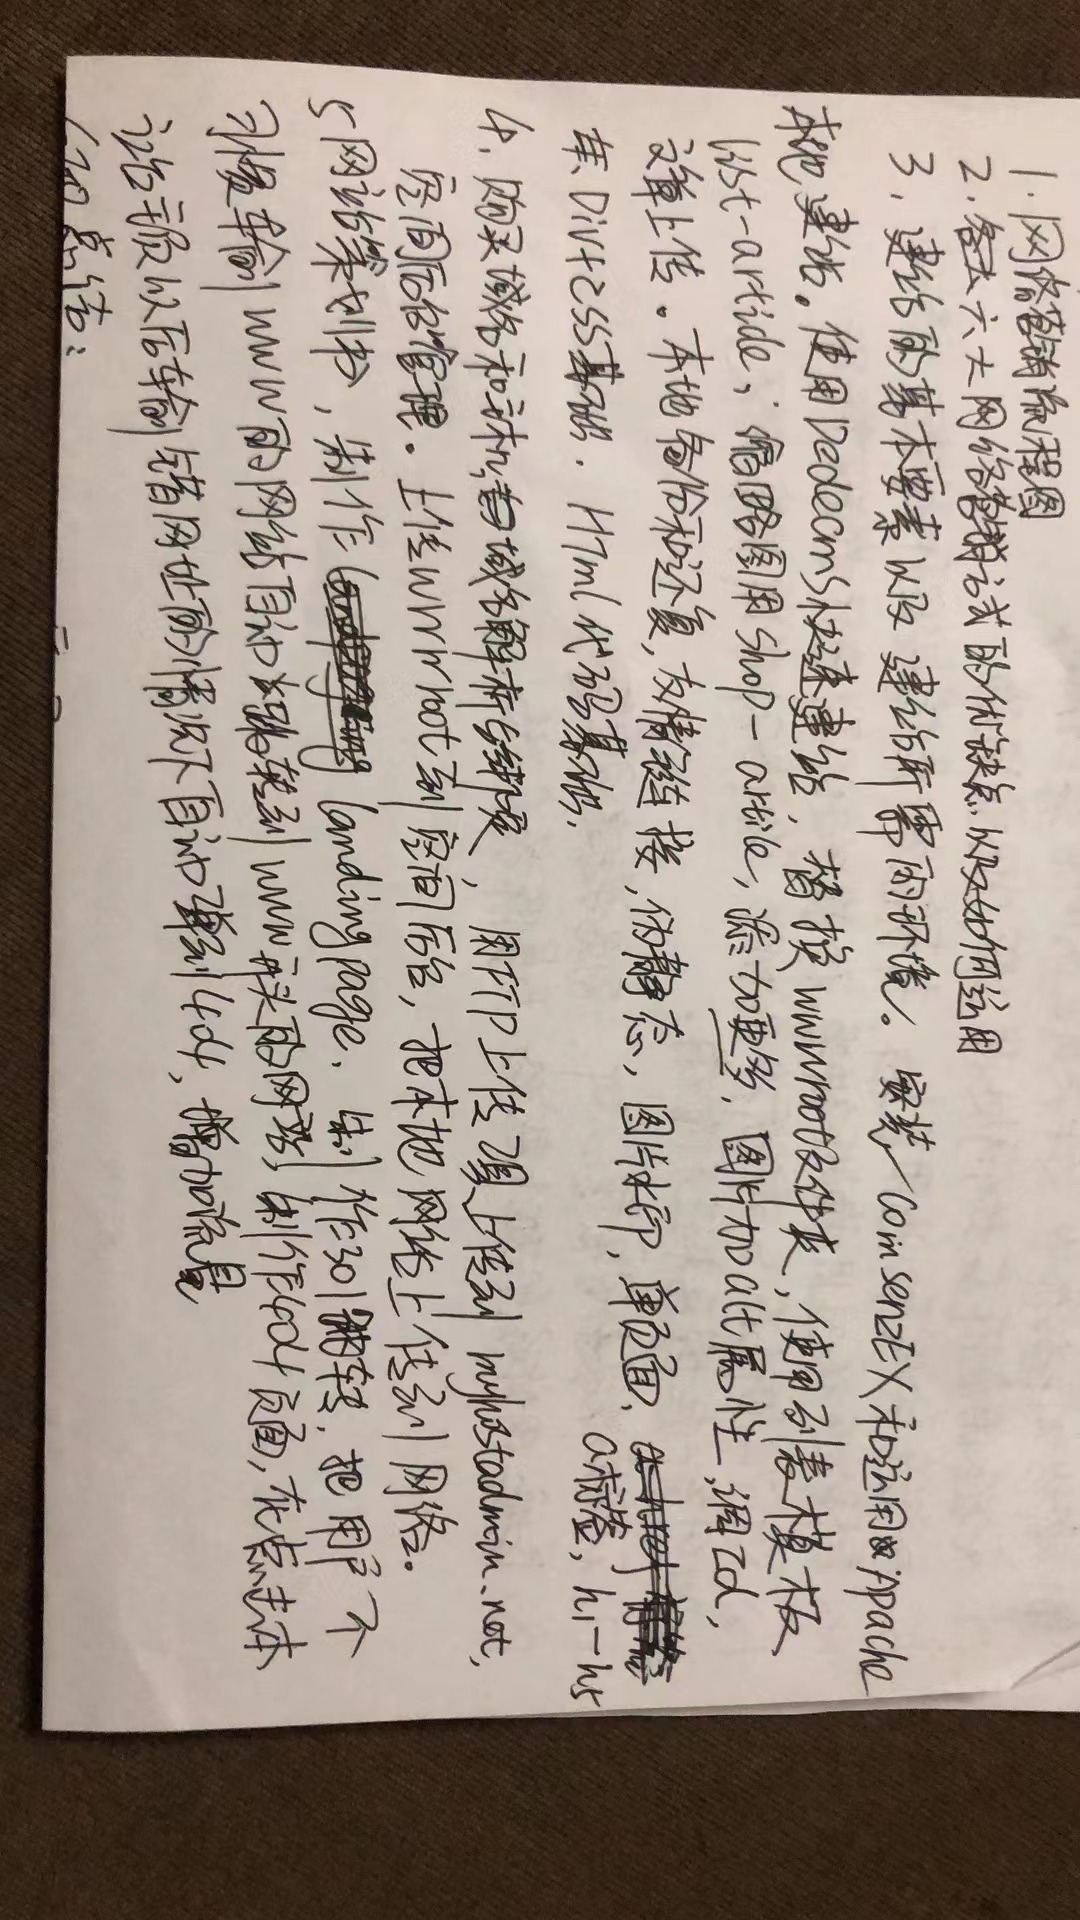 1.网络营销流程图
2.各大六大网络营销方式的优缺点以及如何运用
3.建站的基本要素以及建站所需的环境。安装ComsenzEXP和运用Apache
本地建站。使用Dedecms快速建站,替换wwwroot文件夹,使用列表模板
list-article,缩略图用shop-article,添加更多,图片加alt属性,调Id,
文章上传。本地备份和还原,友情链接,伪静态,图片水印,单页面,
表,Div+css基础.Html代码基础, a标签,h1-h5
4.购买域名和主机,域名解析与绑定,用FTP上传,上传到myhostadmin.net,
空间后台管理.上传wwwroot到空间后台,把本地网站上传到网络。
5网站策划书,制作landing page.制作301跳转,把用户不
习惯输www的网站自动跳转到www开头的网站,制作404页面,在点击本
站或以后输错网址的情况下自动弹到404,增加流量
公司总结: